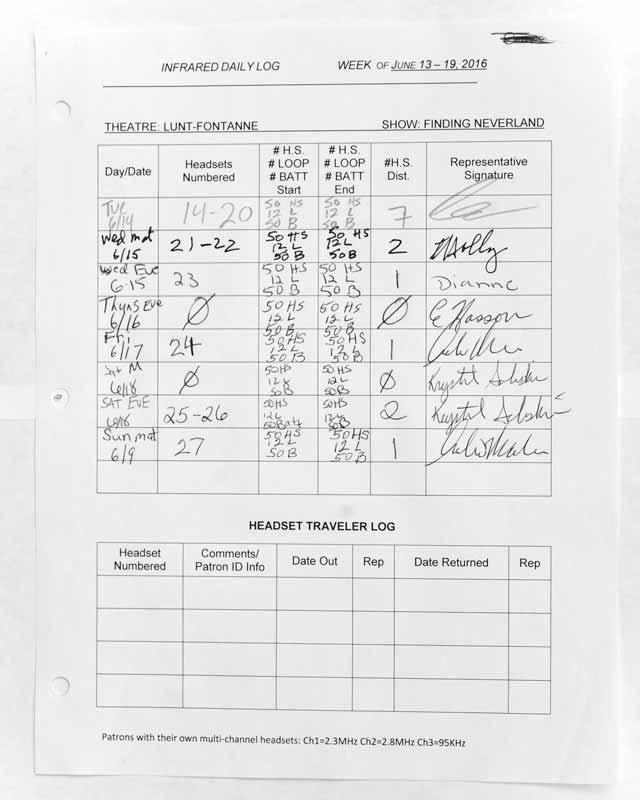 INFRARED DAILY LOG WEEK OF JUNE 13 – 19, 2016
THEATRE: LUNT-FONTANNE SHOW: FINDING NEVERLAND
Day/Date Headsets Numbered # H.S. # LOOP # BATT Start # H.S. # LOOP # BATT End #H.S. Dist. Representative Signature
Tue 6/14 14-20 50 HS 12 L 50 B 50 HS 12 L 50 B 7
Wed mat 6/15 21-22 50 HS 12 L 50 B 50 HS 12 L 50 B 2
Wed Eve 6-15 23 50 HS 12 L 50 B 50 HS 12 L 50 B 1 Dianne
Thurs Eve 6/16 Ø 50 HS 12 L 50 B 50 HS 12 L 50 B Ø E Hasson
Fri 6/17 24 50 HS 12 L 50 B 50 HS 12 L 50 B 1
Sat M 6/18 Ø 50 HS 12 L 50 B 50 HS 12 L 50 B Ø Krystal
SAT EVE 6/18 25-26 50 HS 12 L 50 Batt 50 HS 12 L 50 B 2 Krystal
Sun mat 6/9 27 50 HS 12 L 50 B 50 HS 12 L 50 B 1
HEADSET TRAVELER LOG
Headset Numbered Comments/ Patron ID Info Date Out Rep Date Returned Rep
Patrons with their own multi-channel headsets: Ch1=2.3MHz Ch2=2.8MHz Ch3=95KHz